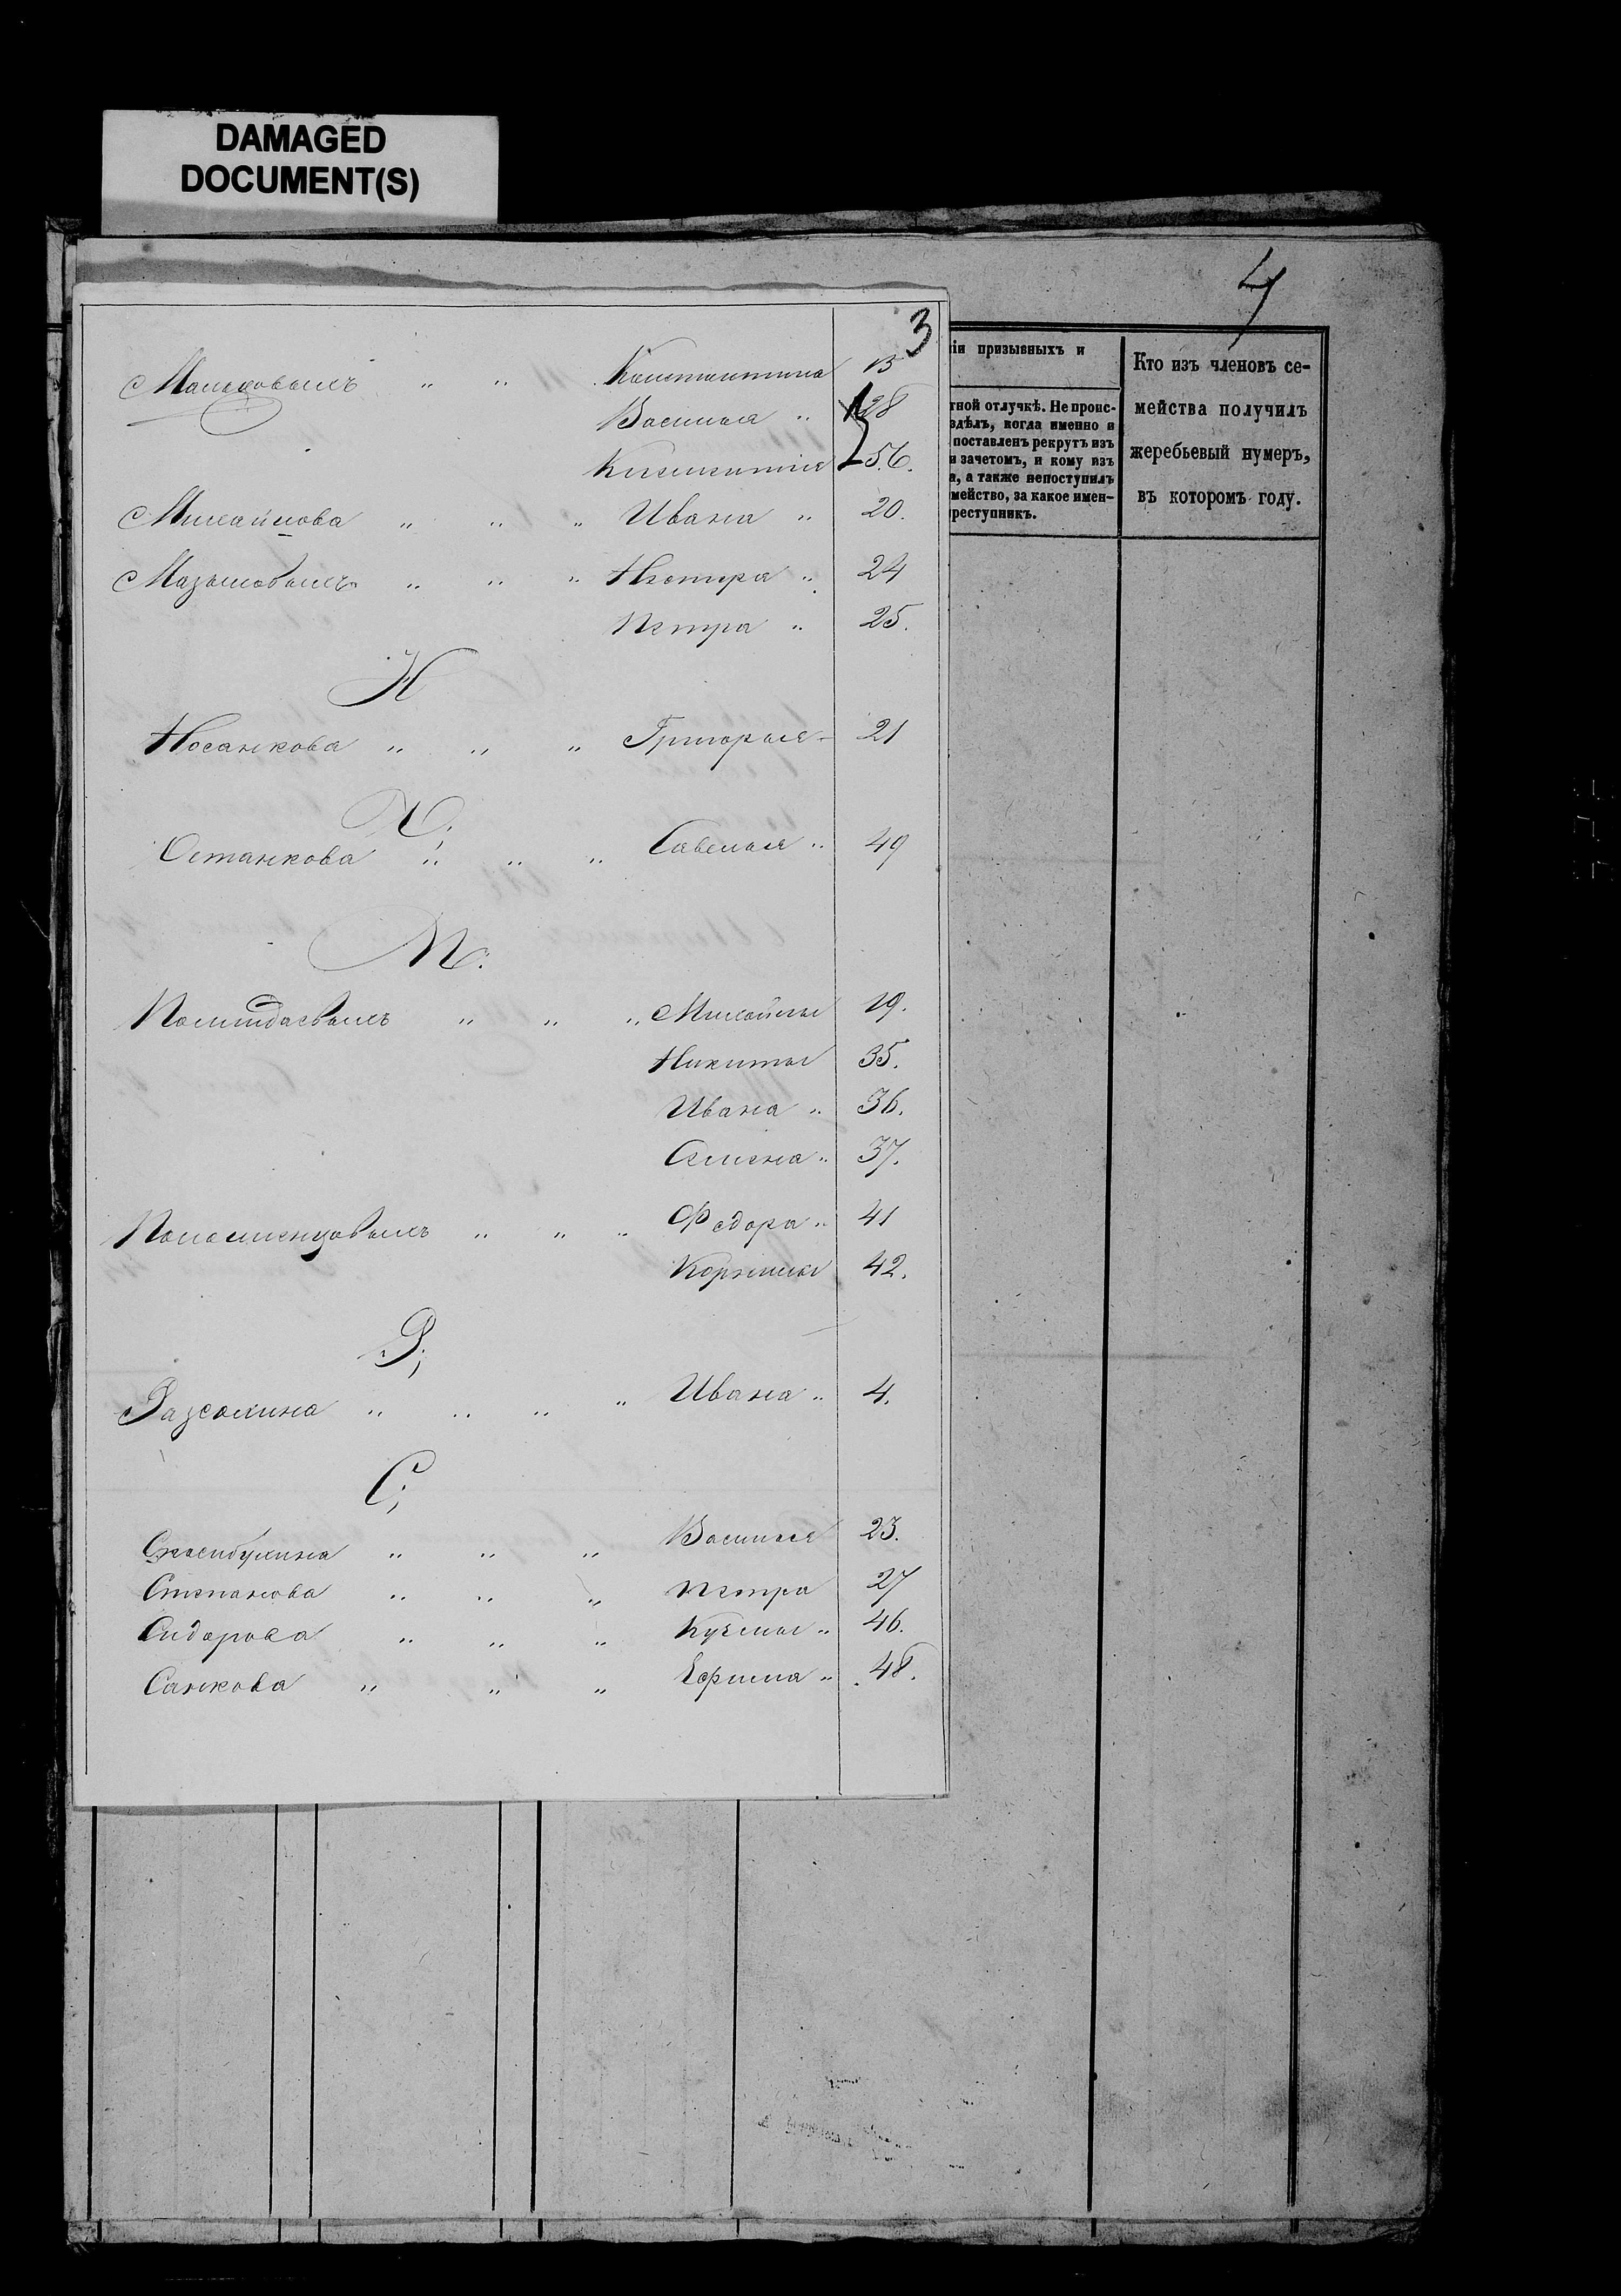 DAMAGED
DOCUMENT(S)
4
3
Константина 13
Василья " 28
Киликитія 56.
Михайлова " " " Ивана " 20.
Мазыловыхъ " " " Нестра " 24
Петра " 25.
Н
Носанкова " " " Григорья 21
О.
Останкова " " " Савелья " 49
П.
" " " Михайлы 19.
Никиты 35.
Ивана " 36.
Семена " 37.
Поломенцовыхъ " " " Федора " 41
Корнилы 42.
Р;
" " " " Ивана " 4.
С;
" " " Василья 23.
Степанова " " " Петра 27
Сидорова " " " Кузмы " 46.
Санкова " " " Ефима " 48.
іи призывныхъ и
тной отлучкѣ. Не проис-
здѣлъ, когда именно и
поставленъ рекрутъ изъ
и зачетомъ, и кому изъ
а, а также непоступилъ
мейство, за какое имен-
реступникъ.
Кто изъ членовъ се-
мейства получилъ
жеребьевый нумеръ,
въ которомъ году.